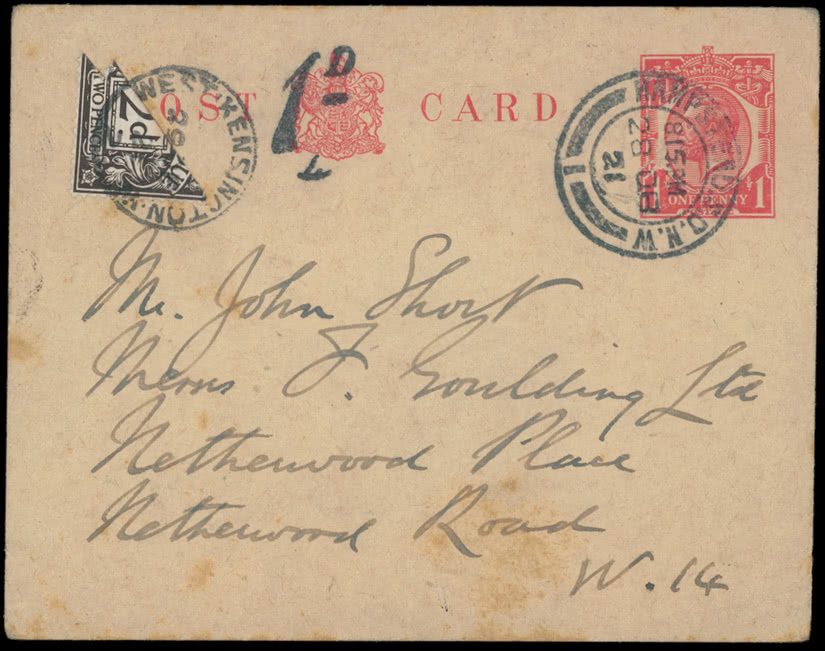 POST CARD
2d
TWO PENCE
DUE
WEST KENSINGTON.
1D
L
HAMPSTEAD P.O. N.W
8.15 PM
21
1 1
ONE PENNY
Mr. John Short
Messrs J. Goulding Ltd
Netherwood Place
Netherwood Road
W. 14